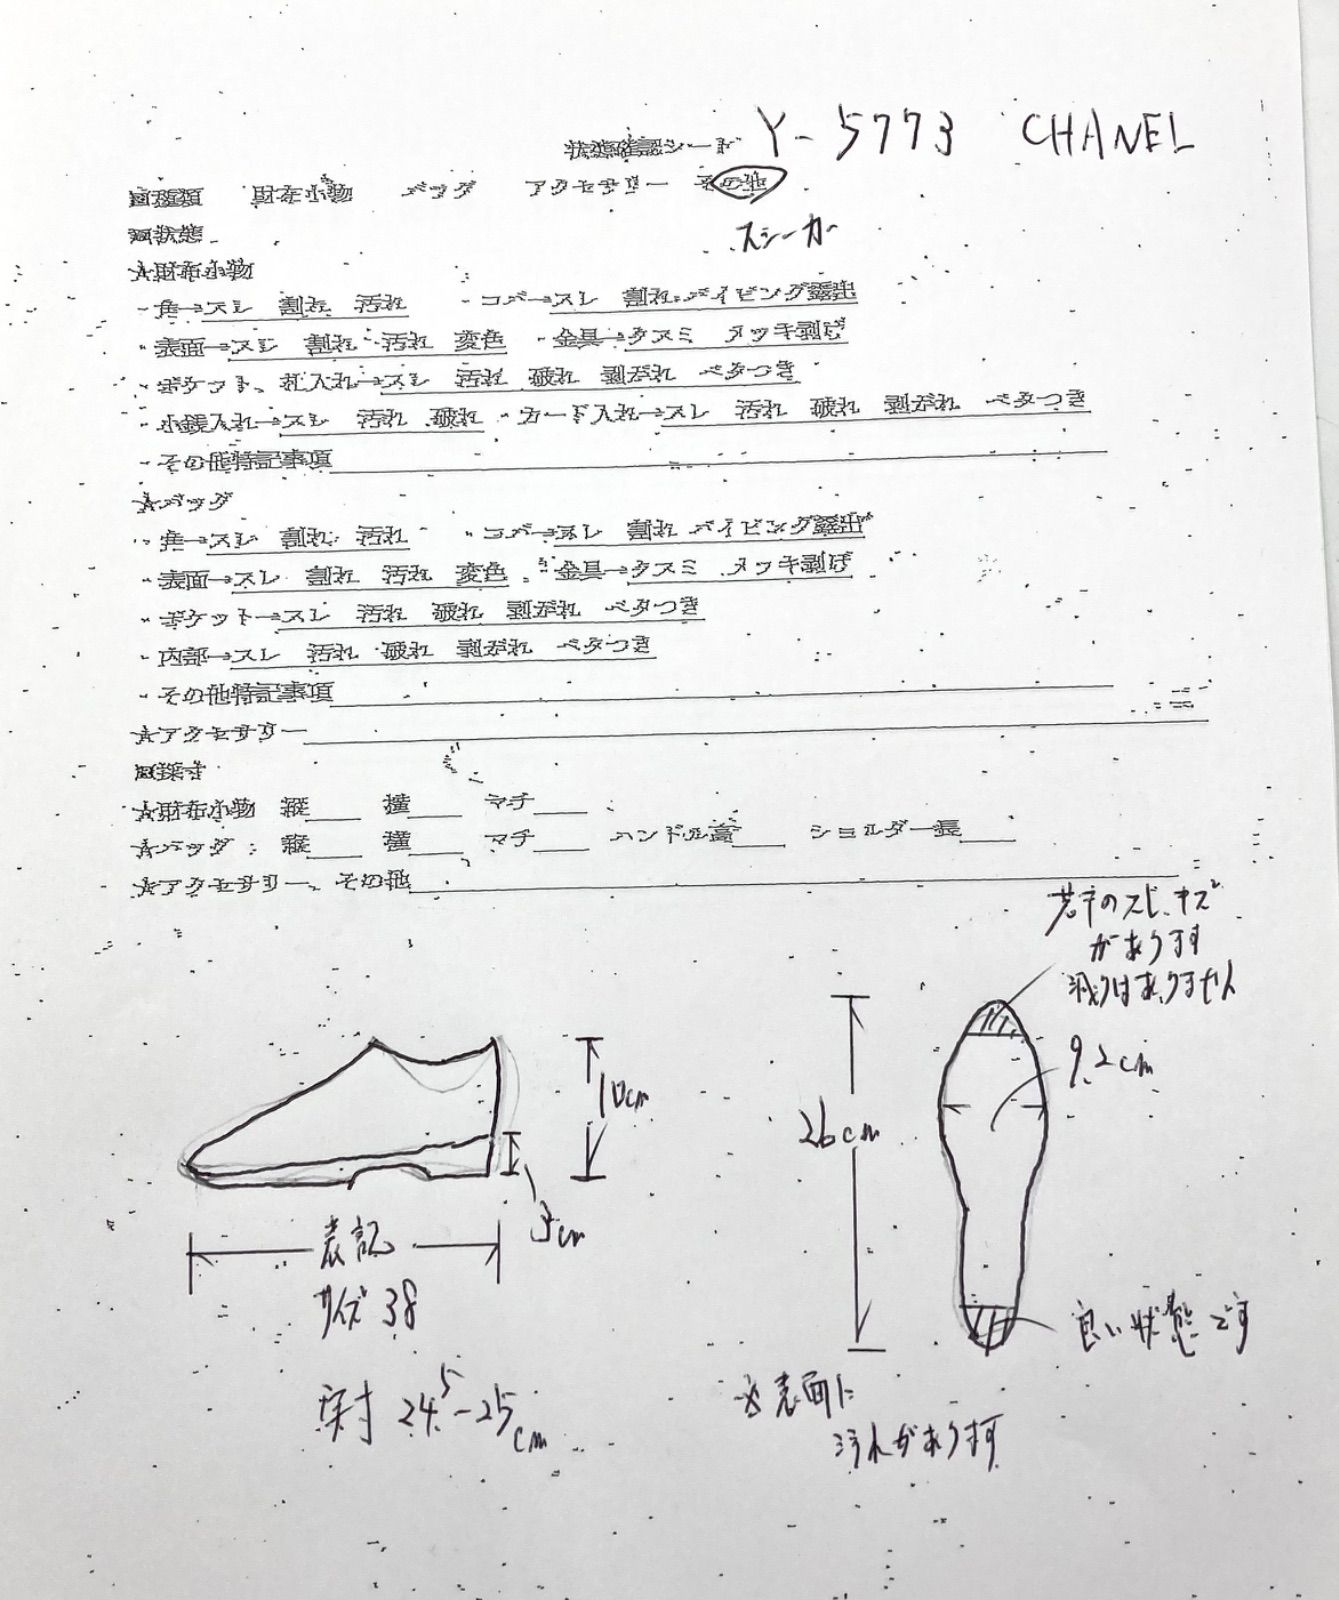 状態確認シート Y-5773 CHANEL
□種類 財布小物 バッグ アクセサリー その他
スニーカー
□状態
☆財布小物
・角→スレ 割れ 汚れ ・コバ→スレ 割れ パイピング露出
・表面→スレ 割れ 汚れ 変色 ・金具→クスミ メッキ剥げ
・ポケット、札入れ→スレ 汚れ 破れ 剥がれ ベタつき
・小銭入れ→スレ 汚れ 破れ ・カード入れ→スレ 汚れ 破れ 剥がれ ベタつき
・その他特記事項
☆バッグ
・角→スレ 割れ 汚れ ・コバ→スレ 割れ パイピング露出
・表面→スレ 割れ 汚れ 変色 ・金具→クスミ メッキ剥げ
・ポケット→スレ 汚れ 破れ 剥がれ ベタつき
・内部→スレ 汚れ 破れ 剥がれ ベタつき
・その他特記事項
☆アクセサリー
□採寸
☆財布小物 縦 横 マチ
☆バッグ: 縦 横 マチ ハンドル高 ショルダー長
☆アクセサリー、その他
若干のスレ、キズ
があります
減りはありません
10cm
3cm
表記
サイズ 38
実寸 24.5-25cm
26cm
9.2cm
良い状態です
※表面に
汚れがあります